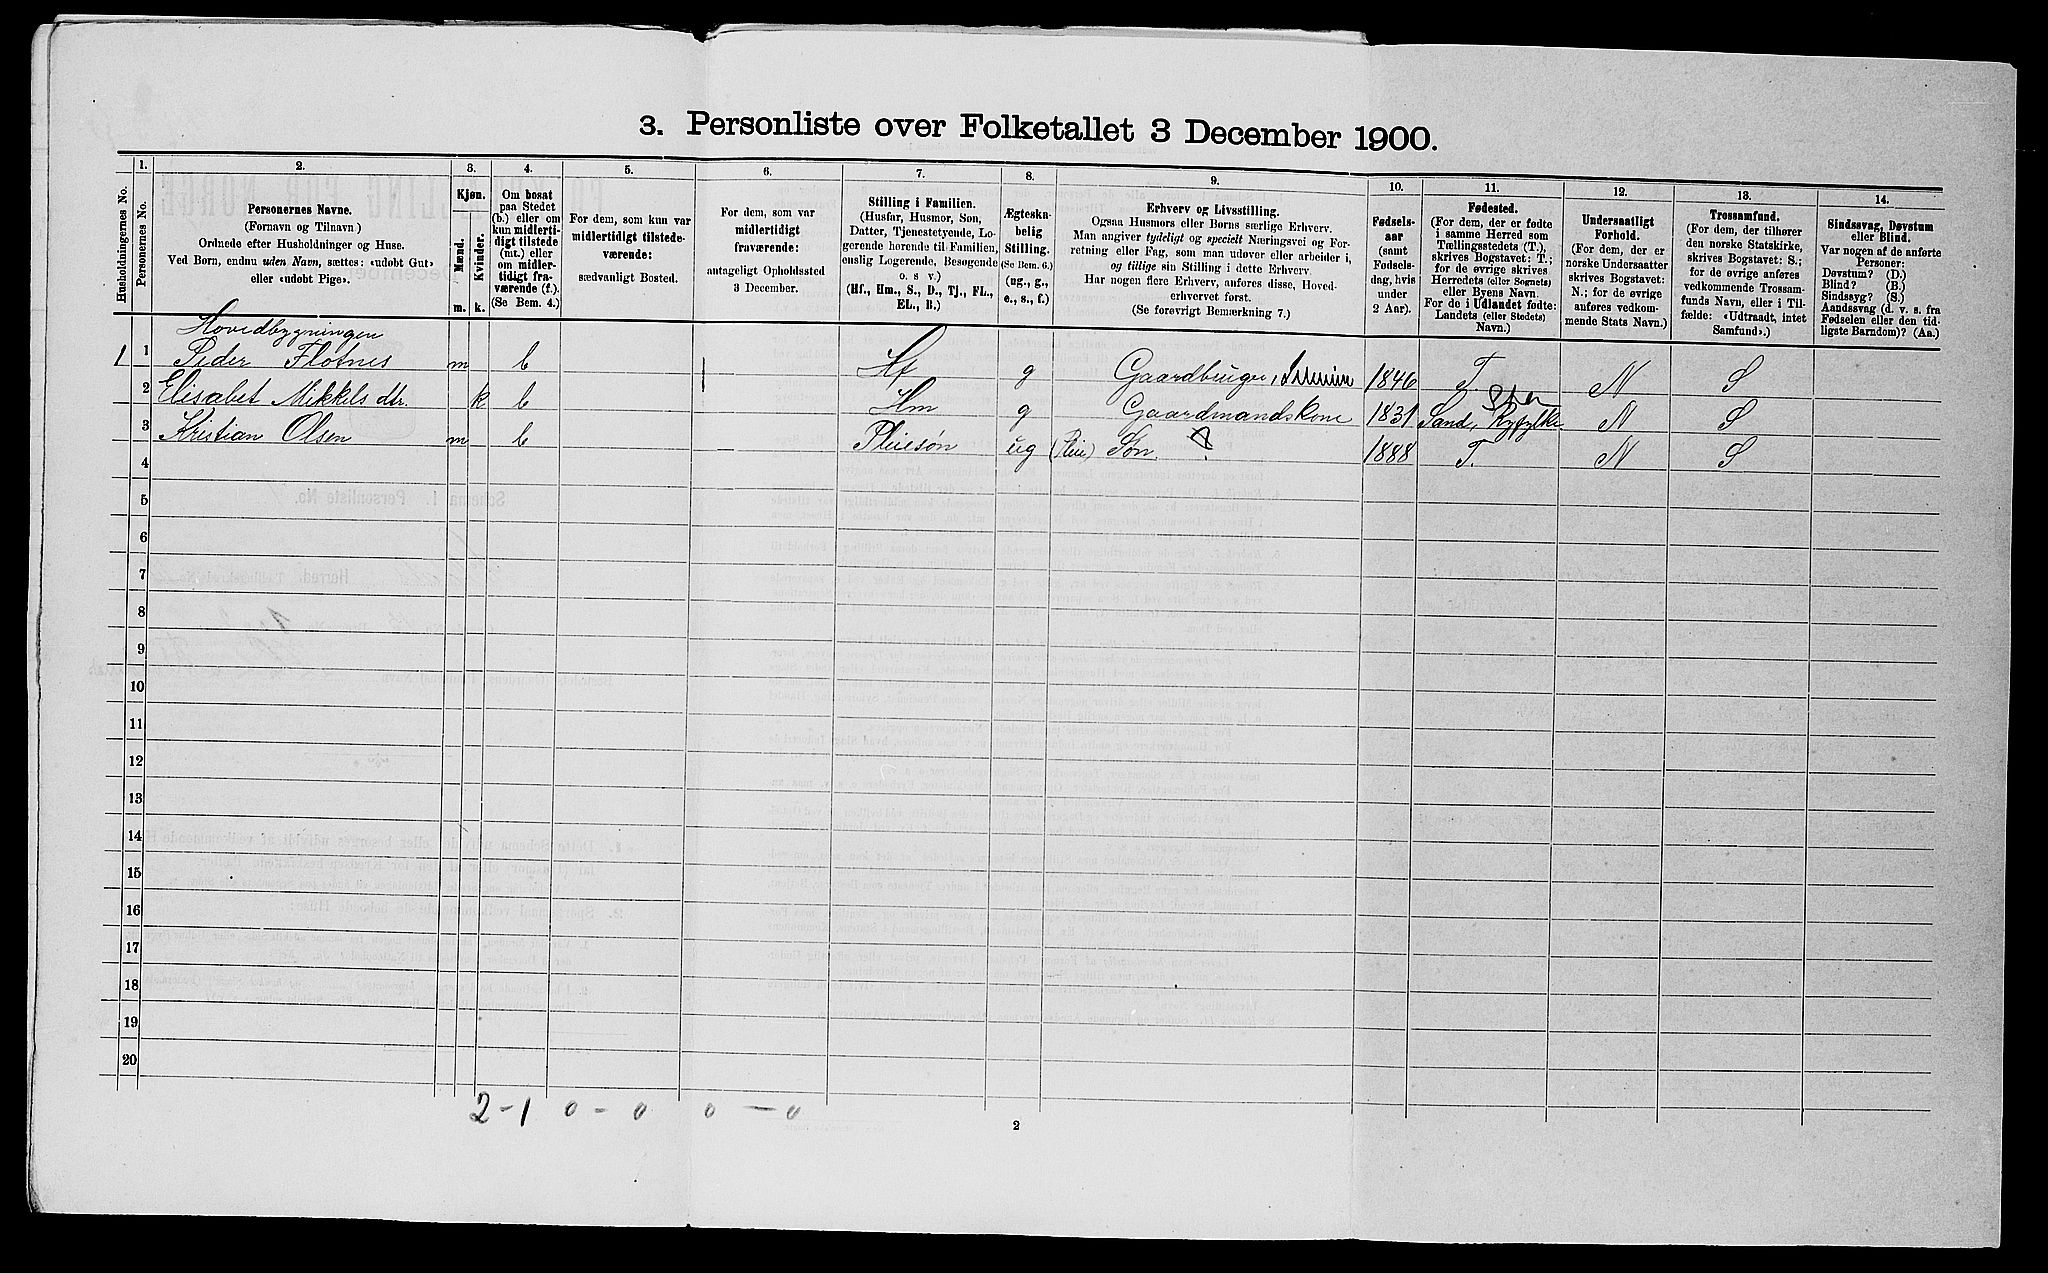 3. Personliste over Folketallet 3 December 1900.
Husholdningernes No.
1.
Personernes No.
2.
Personernes Navne.
(Fornavn og Tilnavn)
Ordnede efter Husholdninger og Huse.
Ved Børn, endnu uden Navn, sættes: «udøbt Gut»
eller «udøbt Pige».
3.
Kjøn.
Mænd.
Kvinder.
m. k.
4.
Om bosat
paa Stedet
(b.) eller om
kun midlerti-
digt tilstede
(mt.) eller
om midler-
tidigt fra-
værende (f.).
(Se Bem. 4.)
5.
For dem, som kun var
midlertidigt tilstede-
værende:
sædvanligt Bosted.
6.
For dem, som var
midlertidigt
fraværende:
antageligt Opholdssted
3 December.
7.
Stilling i Familien.
(Husfar, Husmor, Søn,
Datter, Tjenestetyende, Lo-
gerende hørende til Familien,
enslig Logerende, Besøgende
o. s v.)
(Hf., Hm., S., D., Tj., FL.,
EL., B.)
8.
Ægteska-
belig
Stilling.
(Se Bem. 6.)
(ug., g.,
e., s., f.)
9.
Erhverv og Livsstilling.
Ogsaa Husmors eller Børns særlige Erhverv.
Man angiver tydeligt og specielt Næringsvei og For-
retning eller Fag, som man udøver eller arbeider i,
og tillige sin Stilling i dette Erhverv.
Har nogen flere Erhverv, anføres disse, Hoved-
erhvervet først.
(Se forøvrigt Bemærkning 7.)
10.
Fødsels-
aar
(samt
Fødsels-
dag, hvis
under
2 Aar).
11.
Fødested.
(For dem, der er fødte
i samme Herred som
Tællingsstedets (T.),
skrives Bogstavet: T.;
for de øvrige skrives
Herredets (eller Sognets)
eller Byens Navn.
For de i Udlandet fødte:
Landets (eller Stedets)
Navn.)
12.
Undersaatligt
Forhold.
(For dem, der er
norske Undersaatter
skrives Bogstavet:
N.; for de øvrige
anføres vedkom-
mende Stats Navn.)
13.
Trossamfund.
(For dem, der tilhører
den norske Statskirke,
skrives Bogstavet: S.;
for de øvrige anføres
vedkommende Trossam-
funds Navn, eller i Til-
fælde: «Udtraadt, intet
Samfund».)
14.
Sindssvag, Døvstum
eller Blind.
Var nogen af de anførte
Personer:
Døvstum? (D.)
Blind? (B.)
Sindssyg? (S.)
Aandssvag (d. v. s. fra
Fødselen eller den tid-
ligste Barndom)? (Aa.)
Hovedbygningen
1 1 Peder Flotnes m b Hf g Gaardbruger, 1846 T. N S
2 Elisabet Mikkels dtr. k b Hm g Gaardmandskone 1831 Sand, Ryfylke N S
3 Kristian Olsen m b Pleiesøn ug (Pleie) Søn 1888 T. N S
4
5
6
7
8
9
10
11
12
13
14
15
16
17
18
19
20
2 - 1 0 - 0 0 - 0
2